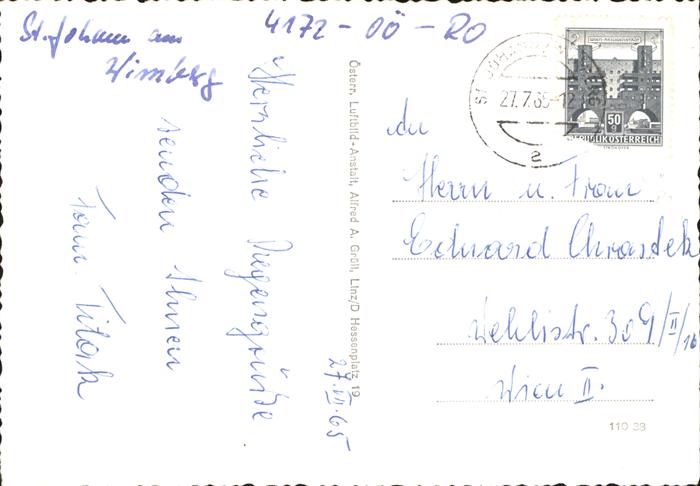 St. Johann am
Wimberg
4172 - OÖ - RO
Herzliche Regengrüße
senden Ihnen
Fam. Titak
27.VII.65
Österr. Luftbild-Anstalt, Alfred A. Gröll, Linz/D Hessenplatz 19
ST. JOHANN
27.7.65-12
a
50
g
REPUBLIK ÖSTERREICH
An
Herrn u. Frau
Eduard Chrastek
Wehlistr. 309/II/16
Wien II.
110 38